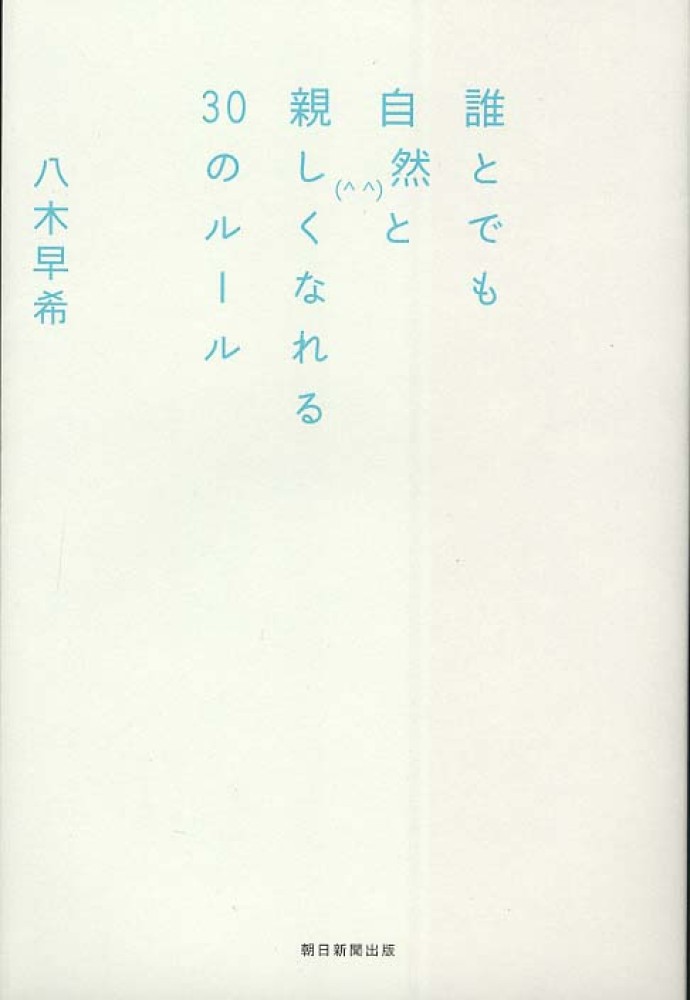 誰とでも
自然と
(^ ^)
親しくなれる
30のルール
八木早希
朝日新聞出版